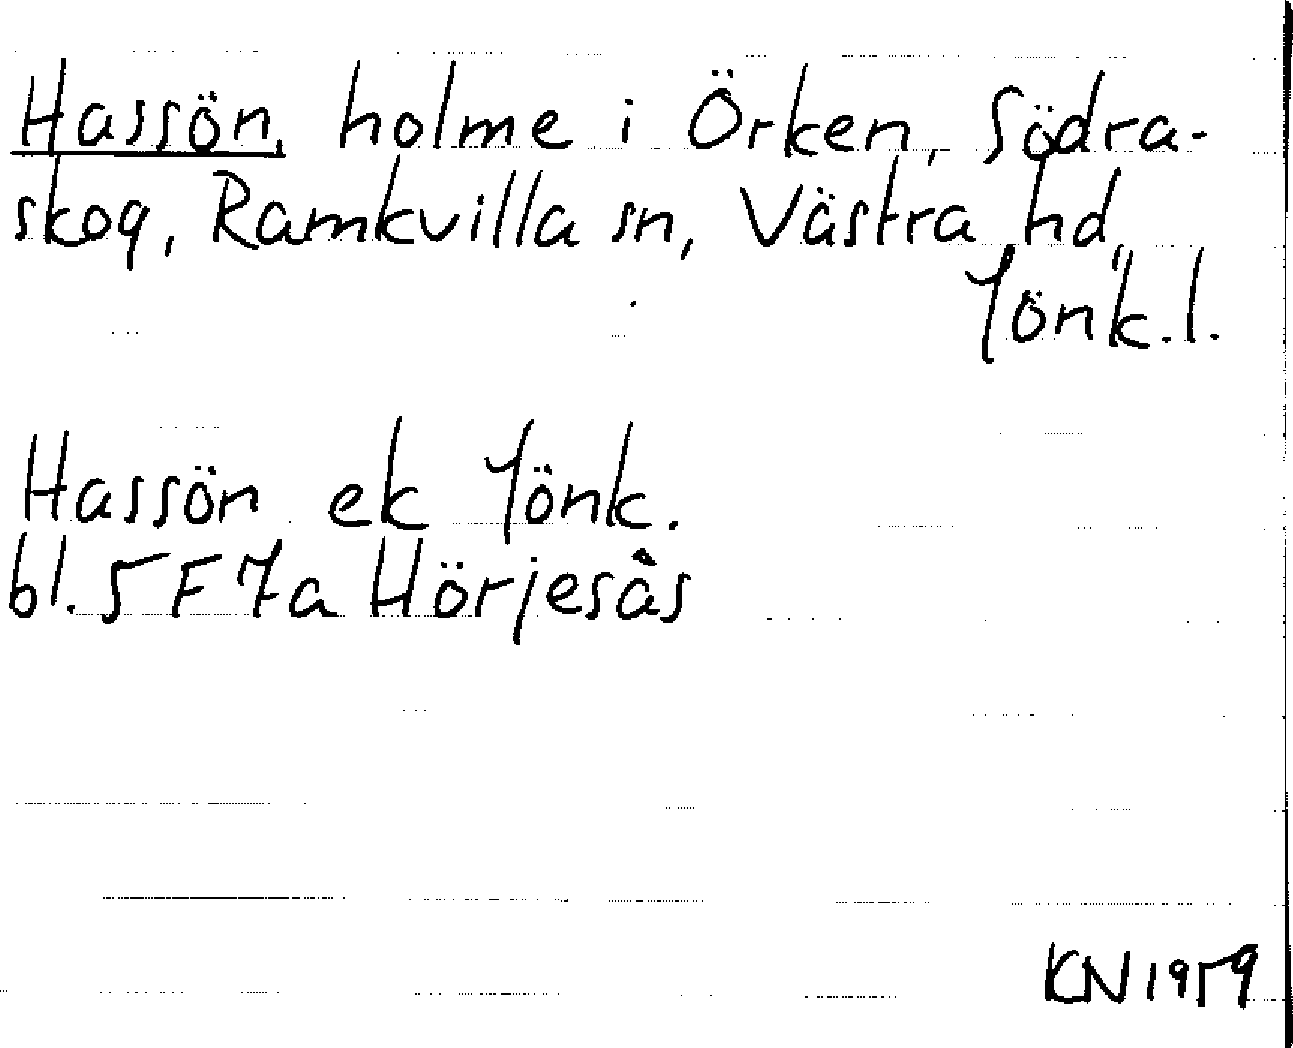 Hassön, holme i Örken, Södra-
skog, Ramkvilla sn, Västra hd,
Jönk.l.
Hassön ek Jönk.
bl. 5F7a Hörjesås
KN1959